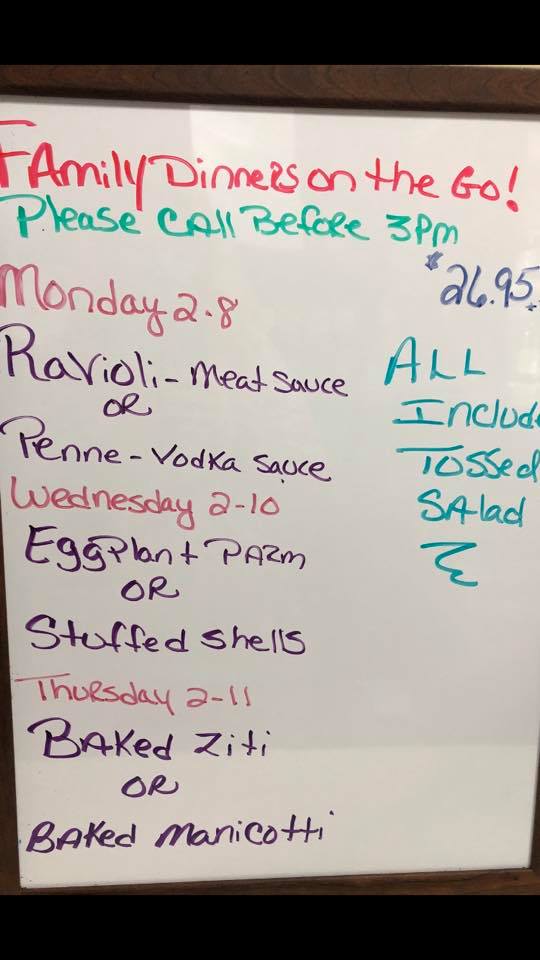 FAmily Dinners on the Go!
Please CAll Before 3pm
$26.95
Monday 2.8
Ravioli - Meat Sauce
OR
Penne - Vodka Sauce
Wednesday 2-10
Eggplant PARm
OR
Stuffed Shells
Thursday 2-11
BAKed Ziti
OR
BAKed Manicotti
ALL
Include
Tossed
SAlad